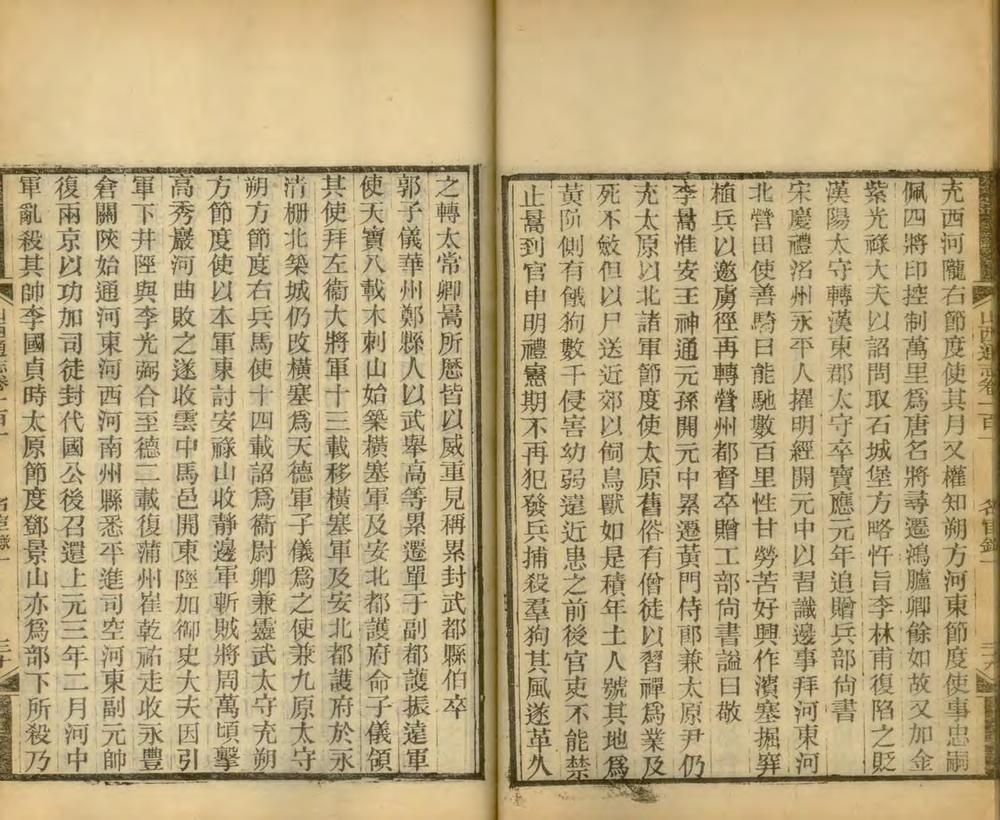 充西河隴右節度使其月又權知朔方河東節度使事忠嗣
佩四將印控制萬里爲唐名將尋遷鴻臚卿餘如故又加金
紫光祿大夫以詔問取石城堡方略忤旨李林甫復陷之貶
漢陽太守轉漢東郡太守卒寶應元年追贈兵部尚書
宋慶禮洺州永平人擢明經開元中以習識邊事拜河東河
北營田使善騎日能馳數百里性甘勞苦好興作濱塞掘穽
植兵以邀虜徑再轉營州都督卒贈工部尚書謚曰敬
李暠淮安王神通元孫開元中累遷黃門侍郎兼太原尹仍
充太原以北諸軍節度使太原舊俗有僧徒以習禪爲業及
死不斂但以尸送近郊以飼鳥獸如是積年土人號其地爲
黃阬側有餓狗數千侵害幼弱遠近患之前後官吏不能禁
止暠到官申明禮憲期不再犯發兵捕殺羣狗其風遂革久
山西通志卷一百一 名宦錄一
之轉太常卿暠所歷皆以威重見稱累封武都縣伯卒
郭子儀華州鄭縣人以武舉高等累遷單于副都護振遠軍
使天寶八載木刺山始築橫塞軍及安北都護府命子儀領
其使拜左衞大將軍十三載移橫塞軍及安北都護府於永
清柵北築城仍改橫塞爲天德軍子儀爲之使兼九原太守
朔方節度右兵馬使十四載詔爲衞尉卿兼靈武太守充朔
方節度使以本軍東討安祿山收靜邊軍斬賊將周萬頃擊
高秀巖河曲敗之遂收雲中馬邑開東陘加御史大夫因引
軍下井陘與李光弼合至德二載復蒲州崔乾祐走收永豐
倉關陜始通河東河西河南州縣悉平進司空河東副元帥
復兩京以功加司徒封代國公後召還上元三年二月河中
軍亂殺其帥李國貞時太原節度鄧景山亦爲部下所殺乃
山西通志卷一百一 名宦錄一 三十